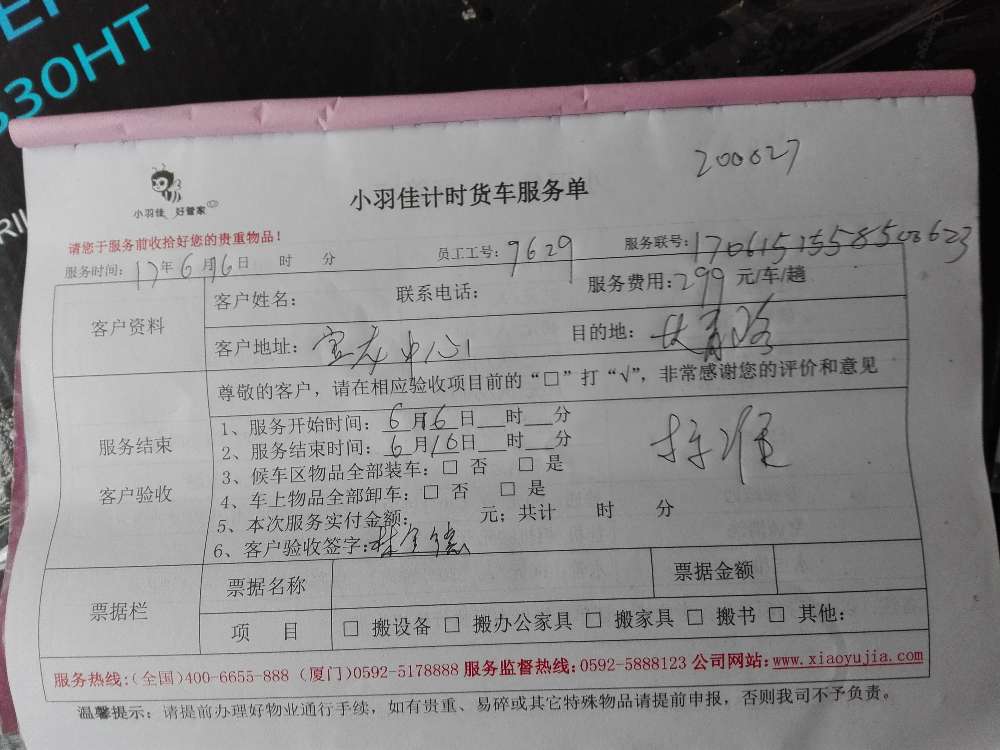 330HT
200027
小羽佳 好管家
小羽佳计时货车服务单
请您于服务前收拾好您的贵重物品！
服务时间：17年6月16日 时 分 员工工号：9629 服务联号：
客户资料
客户姓名： 联系电话： 服务费用：299 元/车/趟
客户地址：宝龙中心 目的地：
服务结束
客户验收
尊敬的客户，请在相应验收项目前的“□”打“√”，非常感谢您的评价和意见
1、服务开始时间：6月16日__时__分
2、服务结束时间：6月16日__时__分
3、候车区物品全部装车：□ 否 □ 是
4、车上物品全部卸车：□ 否 □ 是
5、本次服务实付金额： 元；共计 时 分
6、客户验收签字：
票据栏
票据名称 票据金额
项 目 □ 搬设备 □ 搬办公家具 □ 搬家具 □ 搬书 □ 其他：
服务热线：（全国）400-6655-888 （厦门）0592-5178888 服务监督热线：0592-5888123 公司网站：www.xiaoyujia.com
温馨提示：请提前办理好物业通行手续，如有贵重、易碎或其它特殊物品请提前申报，否则我司不予负责。